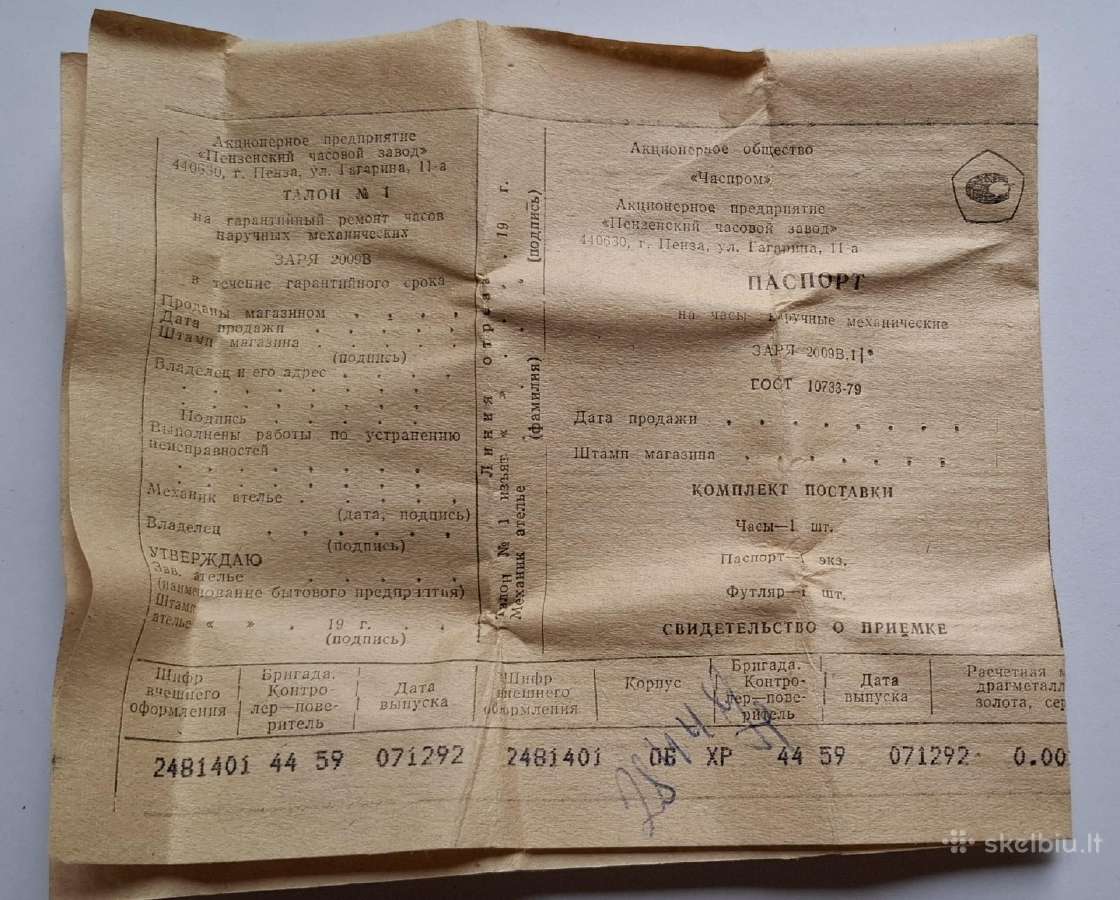 Акционерное предприятие
«Пензенский часовой завод»
440630, г. Пенза, ул. Гагарина, 11-а
ТАЛОН № 1
на гарантийный ремонт часов
наручных механических
ЗАРЯ 2009В
в течение гарантийного срока
Проданы магазином . . . .
Дата продажи . . . . . .
Штамп магазина . . . . . .
(подпись)
Владелец и его адрес . . . .
Подпись . . . . . . . .
Выполнены работы по устранению
неисправностей
Механик ателье . . . . . .
(дата, подпись)
Владелец . . . . . . .
(подпись)
УТВЕРЖДАЮ
Зав. ателье . . . . . .
(наименование бытового предприятия)
Штамп
ателье « » . 19 г. . . .
(подпись)
Линия отреза
Талон № 1 изъят « » . . . . 19 г.
Механик ателье (фамилия) (подпись)
Акционерное общество
«Часпром»
Акционерное предприятие
«Пензенский часовой завод»
440630, г. Пенза, ул. Гагарина, 11-а
ПАСПОРТ
на часы наручные механические
ЗАРЯ 2009В.1
ГОСТ 10733-79
Дата продажи . . . . . . . .
Штамп магазина . . . . . . . .
КОМПЛЕКТ ПОСТАВКИ
Часы—1 шт.
Паспорт—1 экз.
Футляр—1 шт.
СВИДЕТЕЛЬСТВО О ПРИЕМКЕ
Шифр внешнего оформления
Бригада. Контролер—поверитель
Дата выпуска
Шифр внешнего оформления
Корпус
Бригада. Контролер—поверитель
Дата выпуска
Расчетная м
драгметалл
золота, сер
2481401 44 59 071292 2481401 ОБ ХР 44 59 071292 0.00
skelbiu.lt